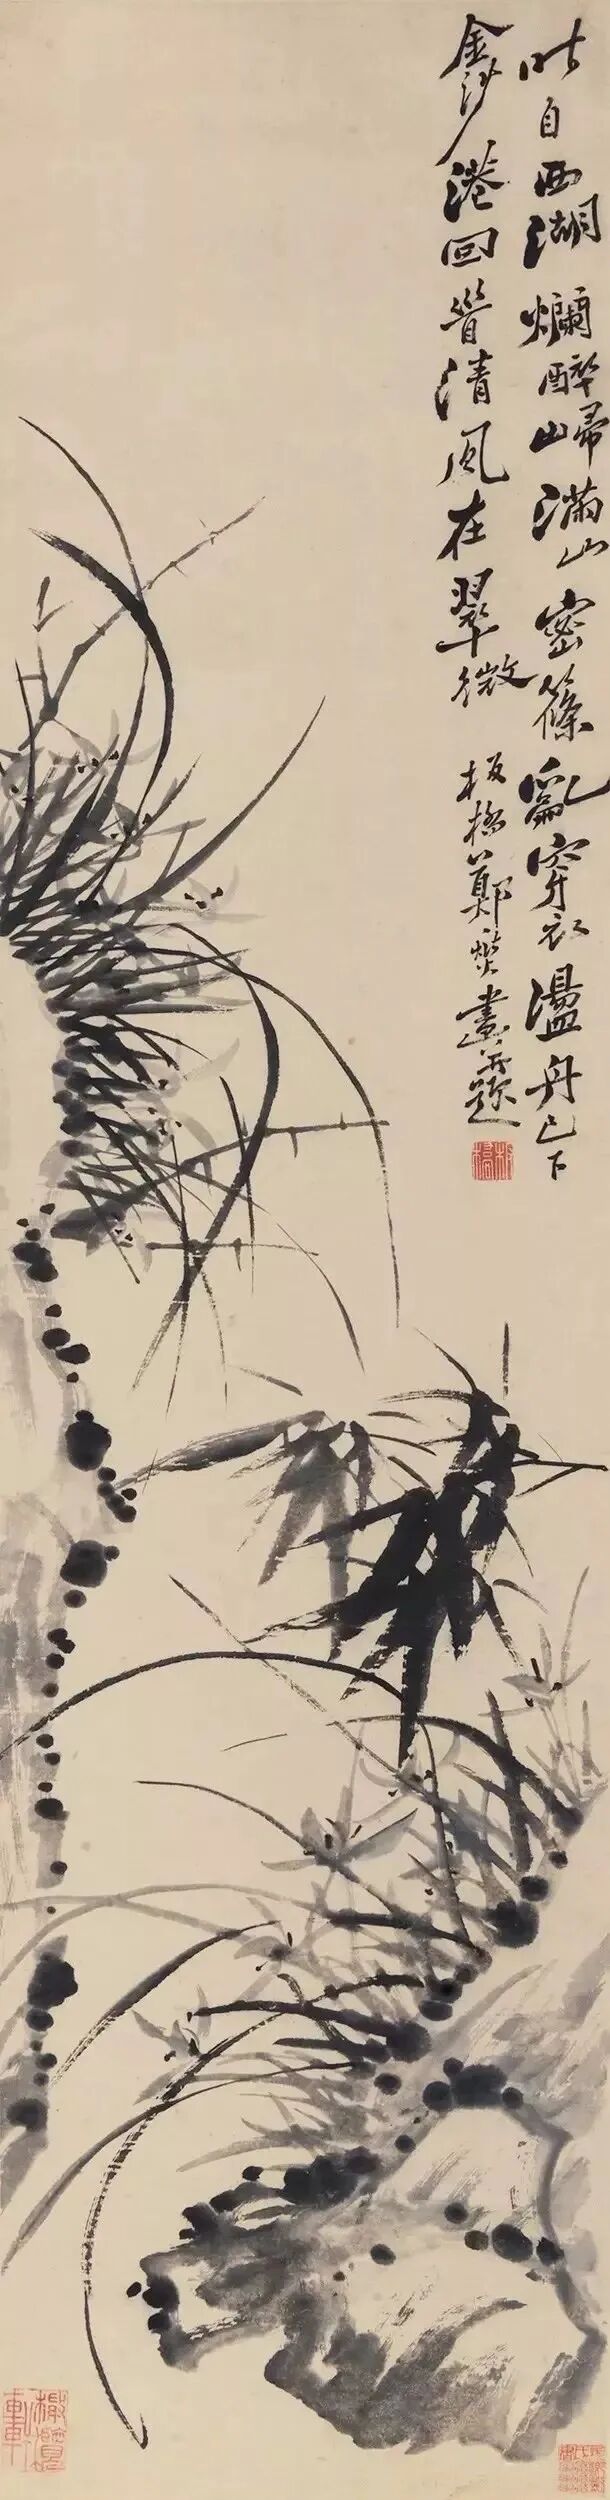 昨自西湖爛醉歸滿山密篠亂穿衣盪舟已下
金沙港回首清風在翠微 板橋鄭燮畫并題
板橋